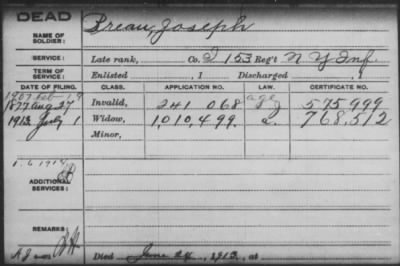 DEAD
NAME OF SOLDIER: Breau, Joseph
SERVICE: Late rank, Co. I 153 Reg't N Y Inf.
TERM OF SERVICE: Enlisted , 1 Discharged , 1
DATE OF FILING. CLASS. APPLICATION NO. LAW. CERTIFICATE NO.
1907 Feb 19
1877 Aug 27 Invalid, 241 068 age 575 999
1913 July 1 Widow, 1,010,499. 768,512
Minor,
ADDITIONAL SERVICES:
REMARKS:
Died June 24, 1913, at